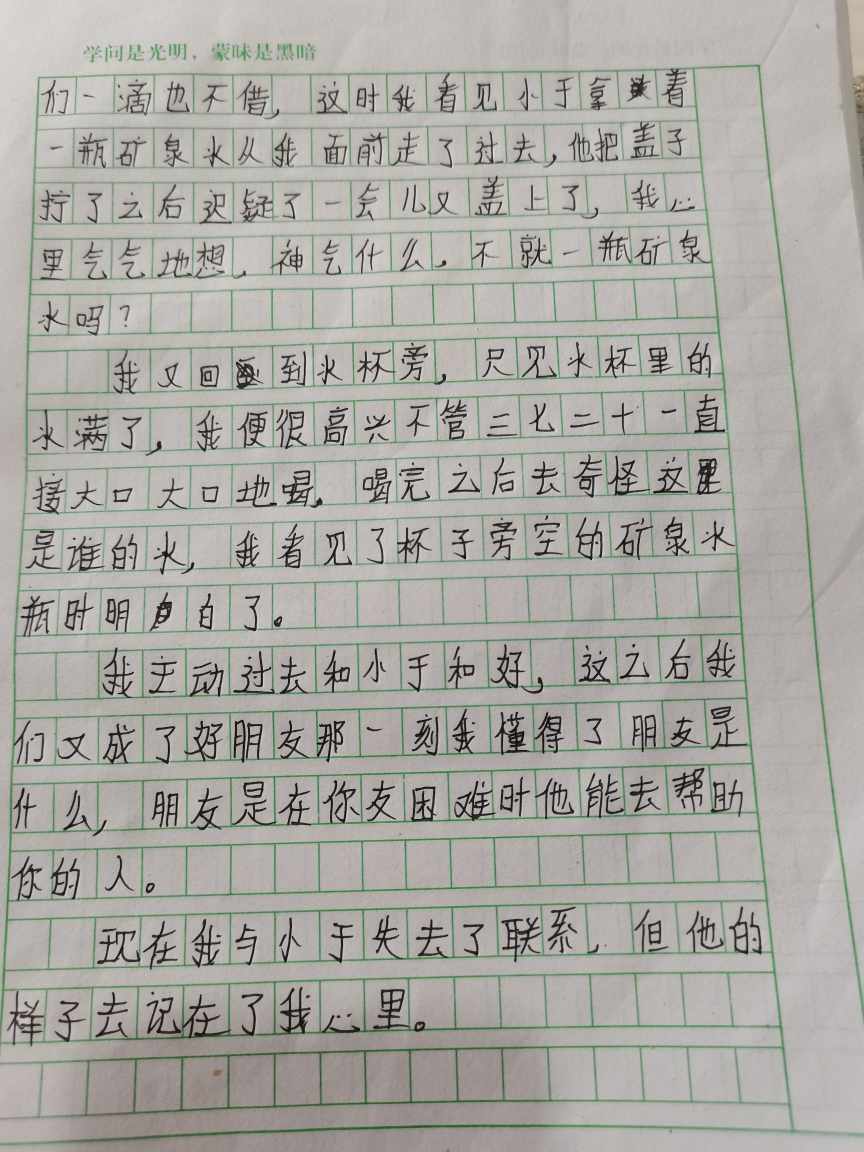 学问是光明，蒙昧是黑暗
们一滴也不借，这时我看见小于拿着
一瓶矿泉水从我面前走了过去，他把盖子
拧了之后迟疑了一会儿又盖上了，我心
里气气地想，神气什么，不就一瓶矿泉
水吗？
我又回到水杯旁，只见水杯里的
水满了，我便很高兴不管三七二十一直
接大口大口地喝，喝完之后去奇怪这里
是谁的水，我看见了杯子旁空的矿泉水
瓶时明白了。
我主动过去和小于和好，这之后我
们又成了好朋友那一刻我懂得了朋友是
什么，朋友是在你友困难时他能去帮助
你的人。
现在我与小于失去了联系，但他的
样子去记在了我心里。